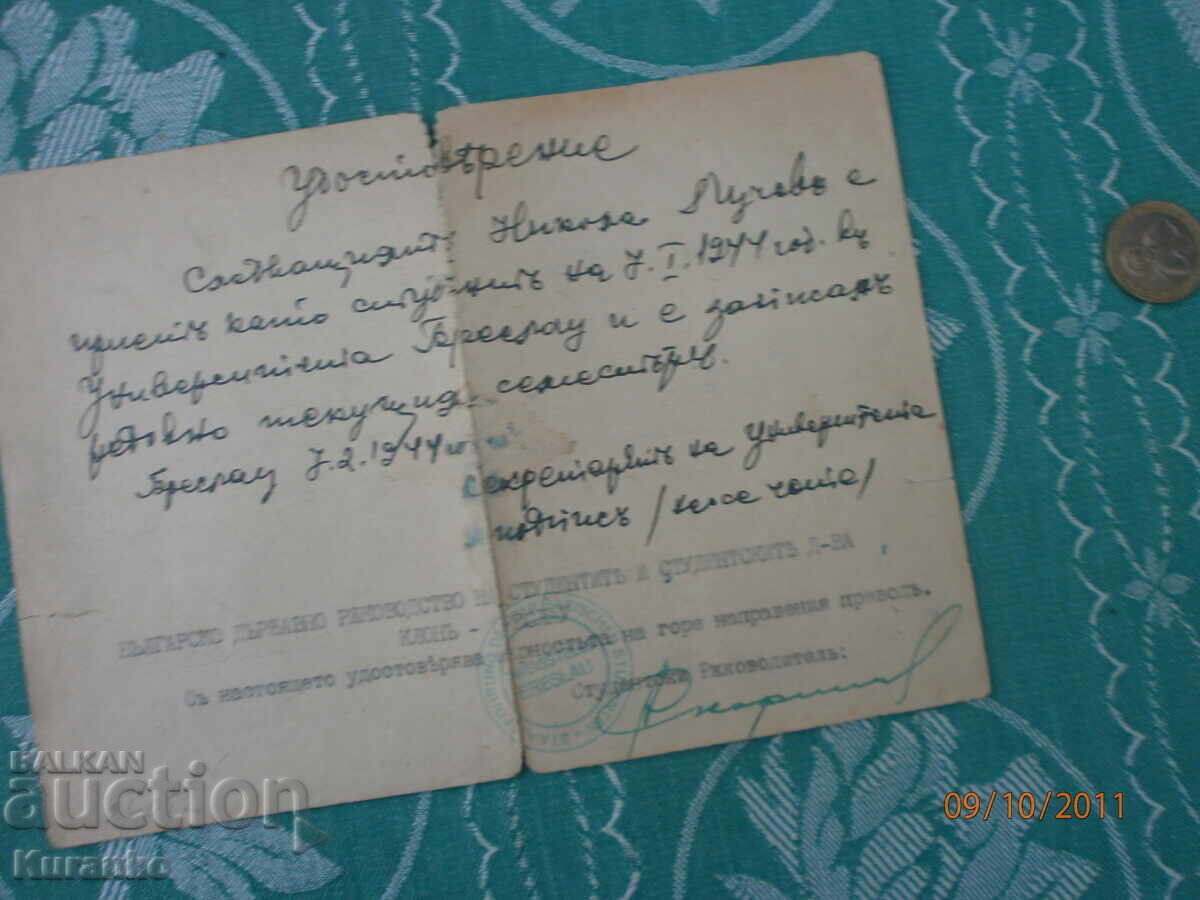 Удостовѣрение
Никола Пучевъ е
приетъ като студентъ на 7.I.1944 год. въ
Университета Бреслау и е записанъ
редовно текущия семестъръ.
Бреслау 7.2.1944
секретарятъ на Университета
подписъ /не се чете/
БЪЛГАРСКО ДЪРЖАВНО РЪКОВОДСТВО НА СТУДЕНТИТѢ И СТУДЕНТСКИТѢ Д-ВА
Съ настоящето удостовѣрява вѣрностьта на горе направения преводъ.
Студентски Ръководитель:
BRESLAU
BALKAN
auction
Kuranko
09/10/2011